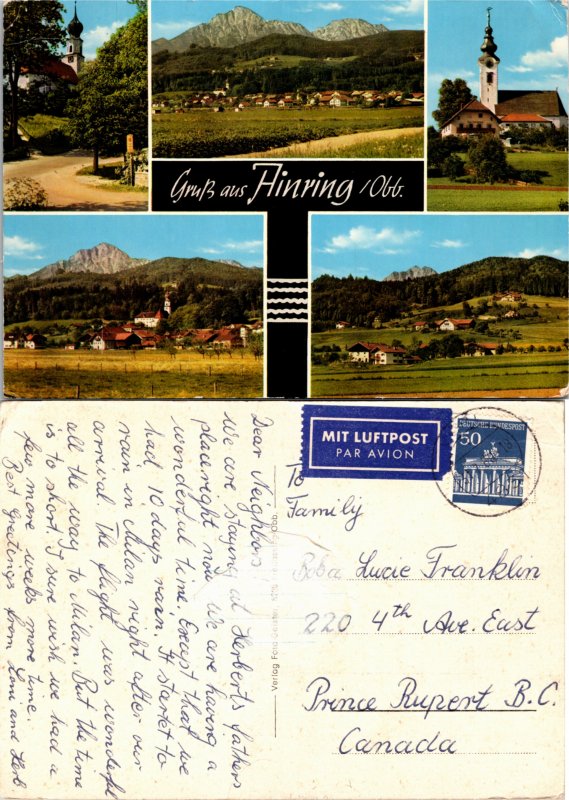 Gruß aus Ainring /Obb.
Dear Neighbors
We are staying at Herberts fathers
place right now. We are having a
wonderful time. Except that we
had 10 days rain. It startet to
rain in Milan right after our
arrival. The flight was wonderful
all the way to Milan. But the time
is to short. I sure wish we had a
few more weeks more time.
Best Greetings from Loni and Herb
MIT LUFTPOST
PAR AVION
DEUTSCHE BUNDESPOST
50
To
Family
Lucie Franklin
220 4th Ave. East
Prince Rupert B.C.
Canada
Verlag